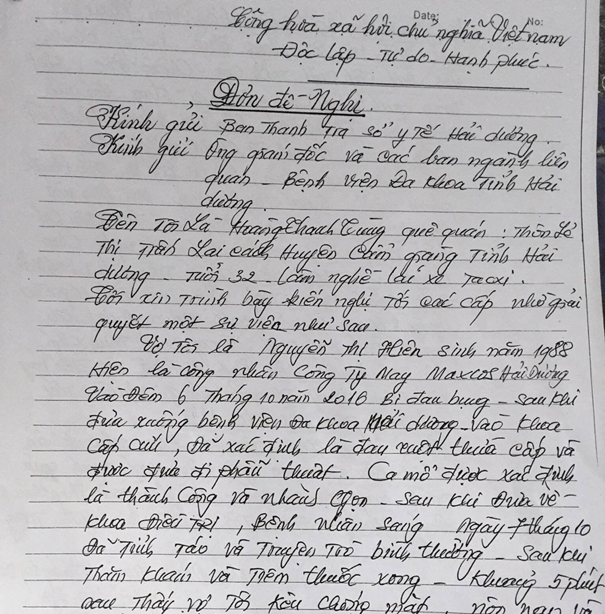 Date: No:
Cộng hòa xã hội chủ nghĩa Việt nam
Độc lập - Tự do - Hạnh phúc.
Đơn đề - Nghị.
Kính gửi Ban Thanh Tra sở y Tế Hải dương
Kính gửi Ông giám đốc và các ban ngành liên
quan - Bệnh viện Đa khoa Tỉnh Hải
dương
Tên Tôi Là Hoàng Thanh Tùng quê quán : Thôn
Thị Trấn Lai cách Huyện Cẩm giàng Tỉnh Hải
dương - Tuổi 32 - làm nghề lái xe Taxi.
Tôi xin Trình bày kiến nghị Tới các cấp nhờ giải
quyết một sự viên như sau.
Vợ Tôi là Nguyễn Thị Hiên sinh năm 1988
Hiện là công nhân Công Ty May Maxcos Hải Dương
Vào Đêm 6 Tháng 10 năm 2016 Bị đau bụng - sau khi
đưa xuống bệnh viện đa khoa Hải dương - vào khoa
cấp cứu, đã xác định là đau ruột thừa cấp và
được đưa đi phẫu thuật. Ca mổ được xác định
là thành Công và nhanh gọn - sau khi đưa về
khoa điều Trị, Bệnh nhân sáng ngày 7 tháng 10
đã Tỉnh Táo và Truyện Trò bình thường - sau khi
Thăm khám và Tiêm thuốc xong - khoảng 5 phút
sau Thấy vợ Tôi kêu chóng mặt,